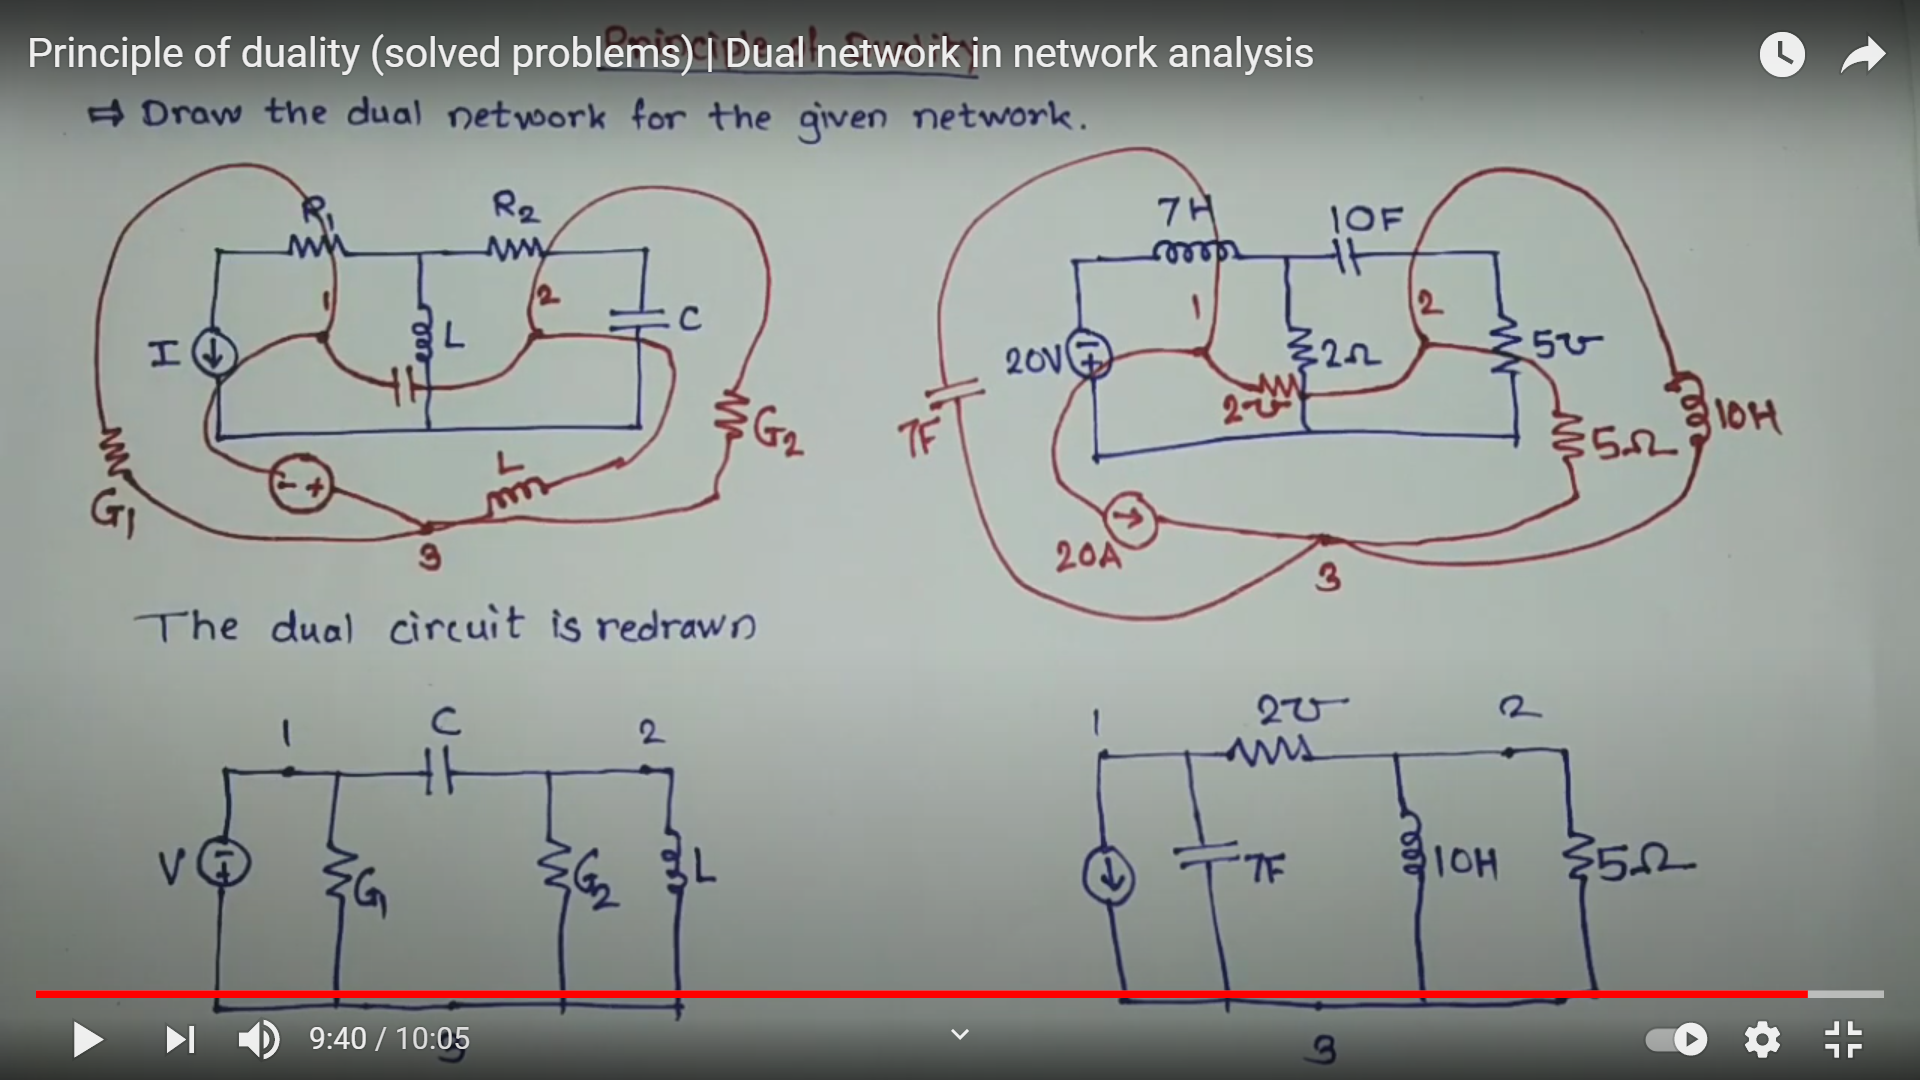 Principle of Duality
Principle of duality (solved problems) | Dual network in network analysis
⇒ Draw the dual network for the given network.
R1 R2
1 2
I L C
G1 L G2
- +
3
7H 10F
1 2
20V - + 2Ω 5℧
7F 2℧ 5Ω 10H
20A
3
The dual circuit is redrawn
1 C 2
V - + G1 G2 L
3
1 2℧ 2
7F 10H 5Ω
3
9:40 / 10:05